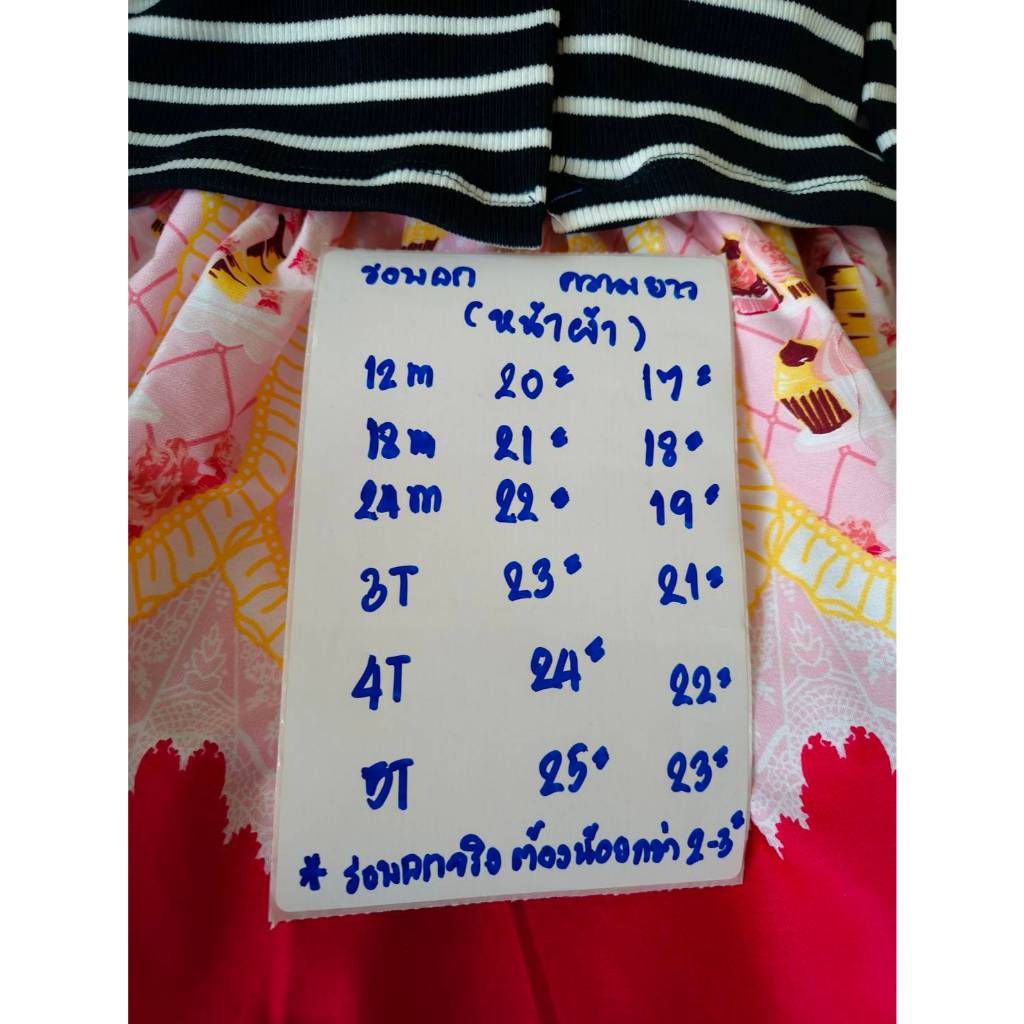 รอบอก ความยาว
(หน้าผ้า)
12m 20" 17"
18m 21" 18"
24m 22" 19"
3T 23" 21"
4T 24" 22"
5T 25" 23"
* รอบอกจริง ต้องน้อยกว่า 2-3"